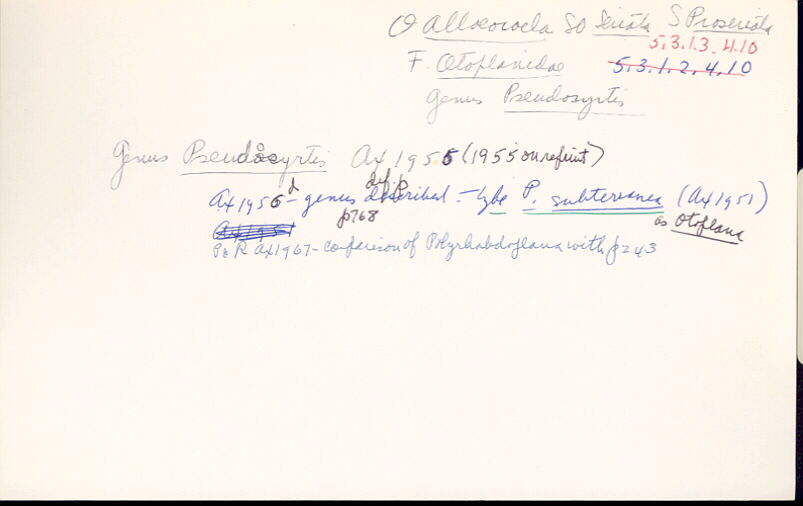 O Alloeocoela SO Seriata S Proseriata
5.3.1.3.4.10
F. Otoplanidae 5.3.1.2.4.10
genus Pseudosyrtis
Genus Pseudosyrtis Ax 1956 (1955 on reprint)
def. p
Ax 1956d - genus described - type P. subterranea (Ax 1951)
p768 as Otoplana
Ax 1951
P & R Ax 1967 - comparison of Polyrhabdoplana with p243